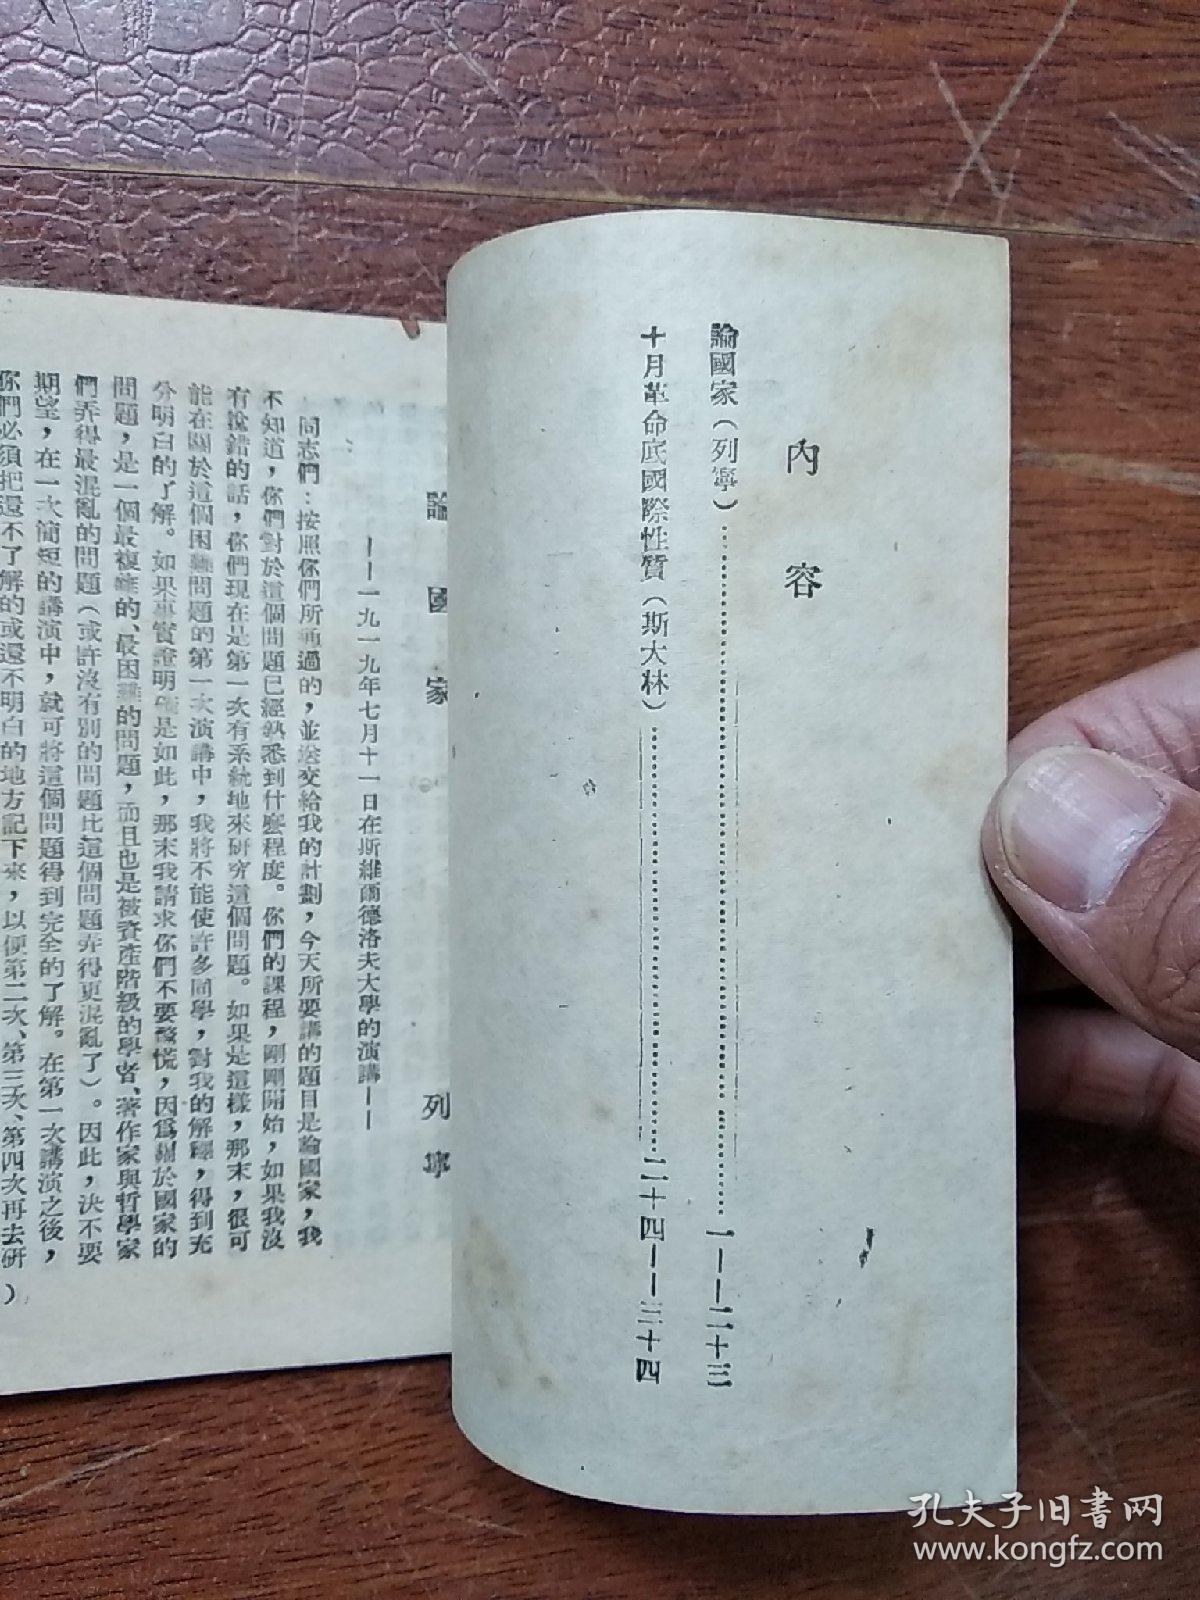 內容
論國家（列寧）……一——二十三
十月革命底國際性質（斯大林）……二十四——三十四
論國家
列寧
——一九一九年七月十一日在斯維爾德洛夫大學的演講——
同志們：按照你們所通過的，並送交給我的計劃，今天所要講的題目是論國家，我
不知道，你們對於這個問題已經熟悉到什麼程度。你們的課程，剛剛開始，如果我沒
有說錯的話，你們現在是第一次有系統地來研究這個問題。如果是這樣，那末，很可
能在關於這個困難問題的第一次演講中，我將不能使許多同學，對我的解釋，得到充
分明白的了解。如果事實證明確是如此，那末我請求你們不要驚慌，因爲關於國家的
問題，是一個最複雜的、最困難的問題，而且也是被資產階級的學者、著作家與哲學家
們弄得最混亂的問題（或許沒有別的問題比這個問題弄得更混亂了）。因此，決不要
期望，在一次簡短的講演中，就可將這個問題得到完全的了解。在第一次講演之後，
你們必須把還不了解的或還不明白的地方記下來，以便第二次、第三次、第四次再去研
孔夫子旧书网
www.kongfz.com